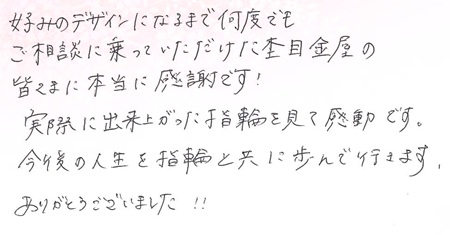 好みのデザインになるまで何度でも
ご相談に乗っていただけた杢目金屋の
皆さまに本当に感謝です!
実際に出来上がった指輪を見て感動です。
今後の人生を指輪と共に歩んで行きます。
ありがとうございました!!